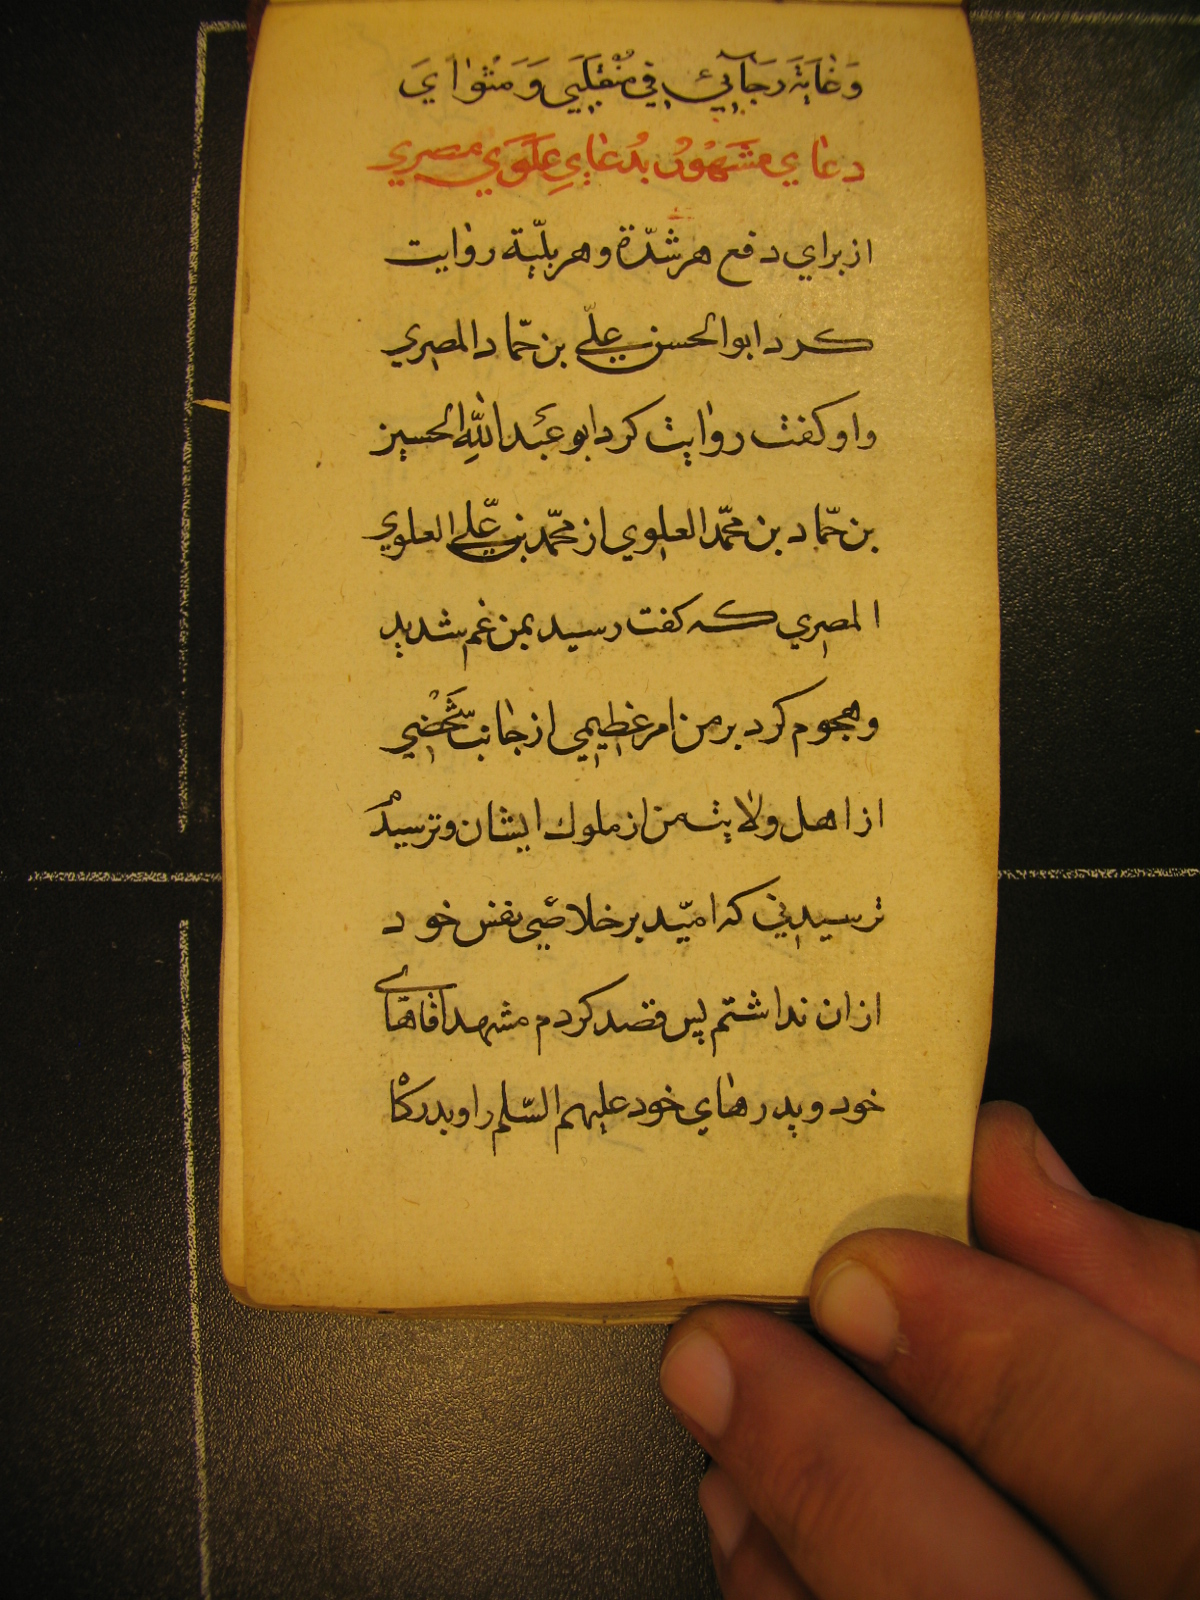 وَغَايَةَ رَجَآئيِ فِي مُنْقَلَبَي وَ مَثْوَايَ
دعاي مشَهوُر بدُعايِ عَلَوَي مصري
از براي دفع هر شدّة و هر بليّة روايت
كرد ابو الحسن علّي بن حمّاد المصري
و او كفت روايت كرد ابو عبَدالله الحسين
بن حمّاد بن محمّد العلوي از محمّد بن علّي العلوي
المصري كه كفت رسيد بمن غم شديد
و هجوم كرد بر من امر عظيمي از جانب شَخْصي
از اهل ولايت من از ملوك ايشان و ترسيدْم
ترسيدني كه اميّد بر خلاصي نفس خود
از ان نداشتم پس قصد كردم مشهد اقاهاى
خود و پدرهاي خود عليهم السّلم را و بدركاْ